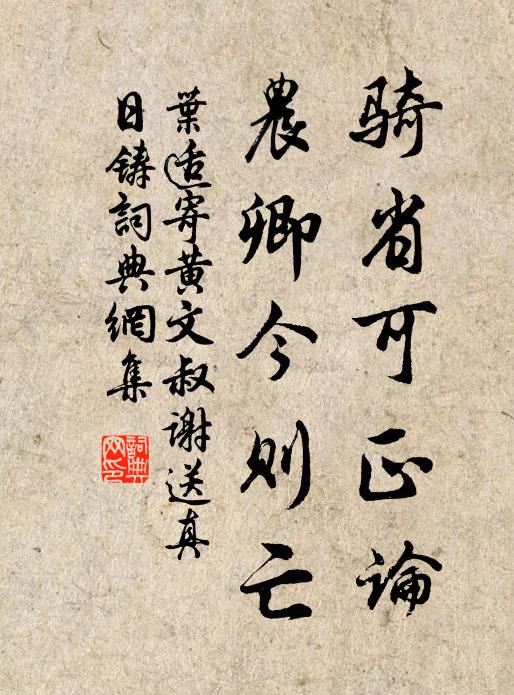 騎省可正論
農卿今則亡
葉适寄黃文叔謝送真
日鑄詞典網集
詞典
网印